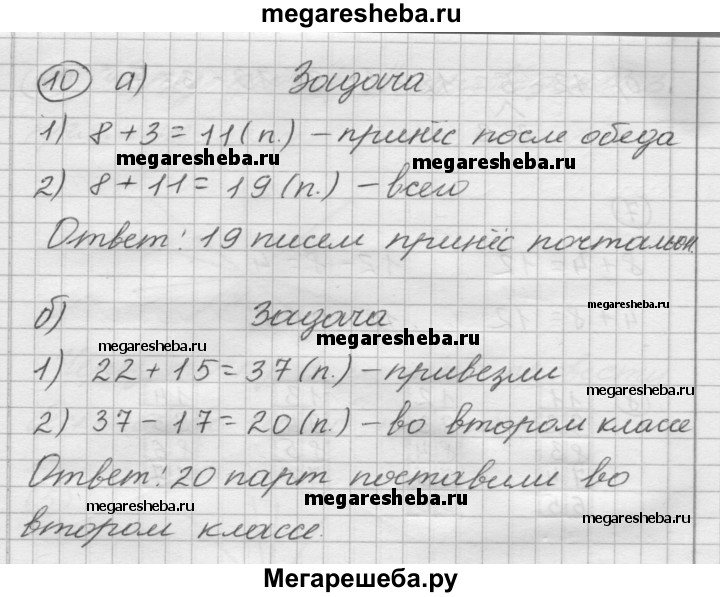 megaresheba.ru
10 а) Задача
1) 8 + 3 = 11 (п.) – принёс после обеда
megaresheba.ru megaresheba.ru
2) 8 + 11 = 19 (п.) – всего
Ответ: 19 писем принёс почтальон.
megaresheba.ru
б) Задача
megaresheba.ru megaresheba.ru
1) 22 + 15 = 37 (п.) – привезли
megaresheba.ru
2) 37 – 17 = 20 (п.) – во втором классе
Ответ: 20 парт поставили во
megaresheba.ru megaresheba.ru megaresheba.ru
втором классе.
Мегарешеба.ру